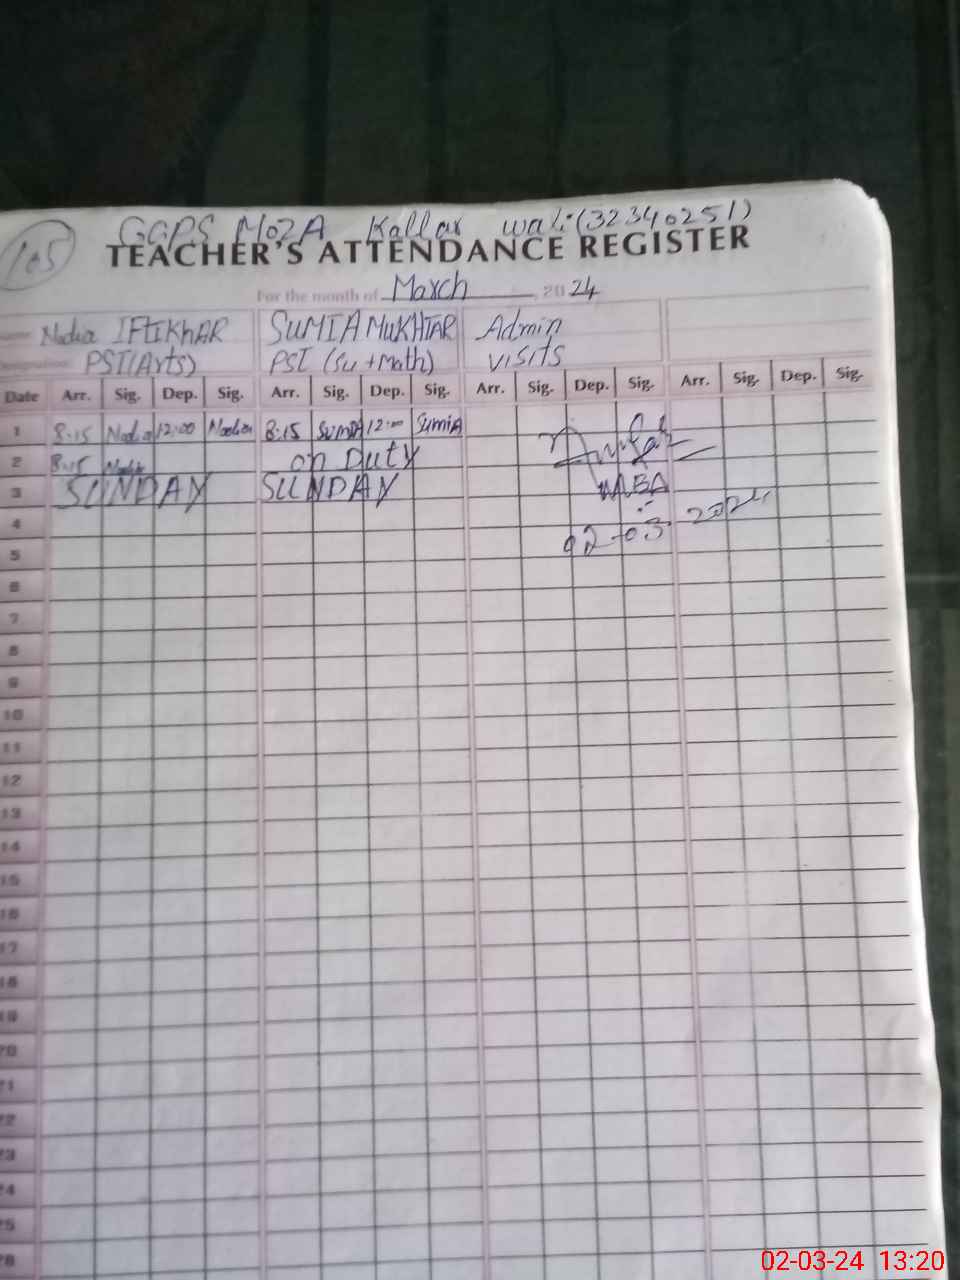 105
GGPS MOZA Kallar wali (32340251)
TEACHER'S ATTENDANCE REGISTER
For the month of March, 2024
Nadia IFtIKhAR SUMIA MUKHTAR Admin
PST(Arts) PST (Su +Math) visits
Date Arr. Sig. Dep. Sig. Arr. Sig. Dep. Sig. Arr. Sig. Dep. Sig. Arr. Sig. Dep. Sig.
1 8:15 Nadia 12:00 Nadia 8:15 SUMIA 12:00 SumiA
2 8:15 Nadia on Duty
3 SUNDAY SUNDAY
4
02-03-2024
5
6
7
8
9
10
11
12
13
14
15
16
17
18
19
20
21
22
23
24
25
26
02-03-24 13:20